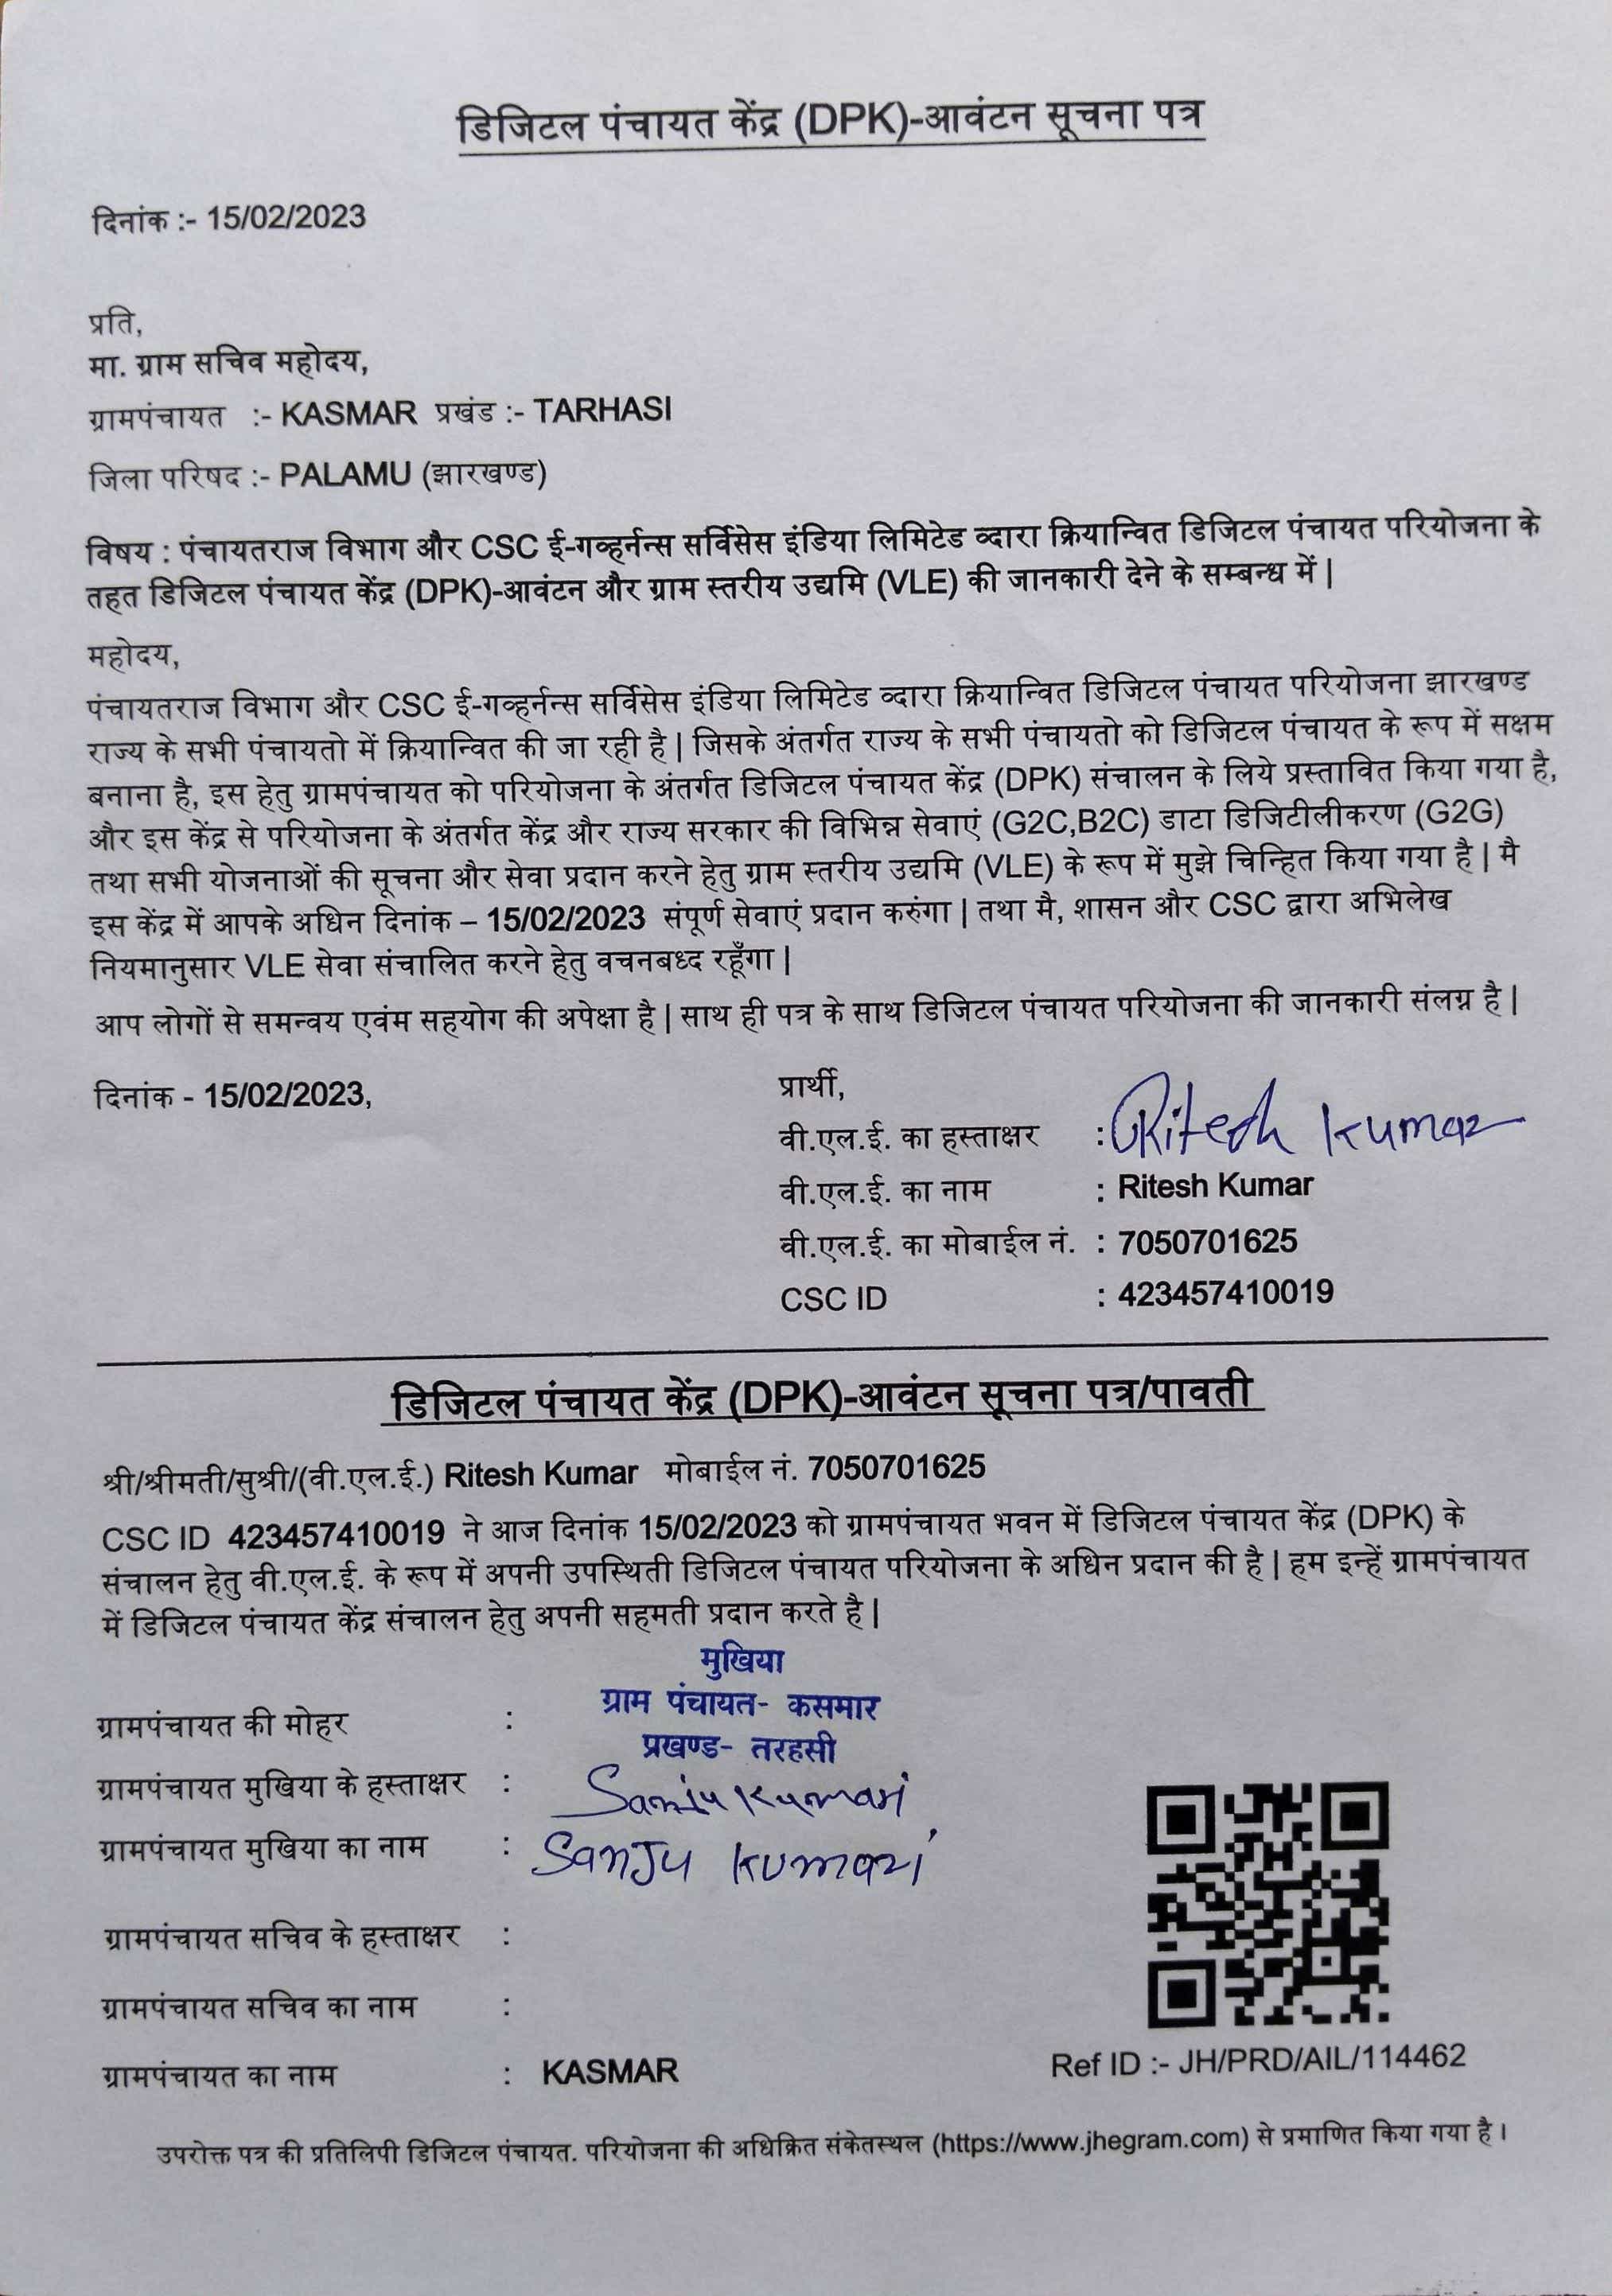 डिजिटल पंचायत केंद्र (DPK)-आवंटन सूचना पत्र
दिनांक :- 15/02/2023
प्रति,
मा. ग्राम सचिव महोदय,
ग्रामपंचायत :- KASMAR प्रखंड :- TARHASI
जिला परिषद :- PALAMU (झारखण्ड)
विषय : पंचायतराज विभाग और CSC ई-गव्हर्नन्स सर्विसेस इंडिया लिमिटेड व्दारा क्रियान्वित डिजिटल पंचायत परियोजना के
तहत डिजिटल पंचायत केंद्र (DPK)-आवंटन और ग्राम स्तरीय उद्यमि (VLE) की जानकारी देने के सम्बन्ध में |
महोदय,
पंचायतराज विभाग और CSC ई-गव्हर्नन्स सर्विसेस इंडिया लिमिटेड व्दारा क्रियान्वित डिजिटल पंचायत परियोजना झारखण्ड
राज्य के सभी पंचायतो में क्रियान्वित की जा रही है | जिसके अंतर्गत राज्य के सभी पंचायतो को डिजिटल पंचायत के रूप में सक्षम
बनाना है, इस हेतु ग्रामपंचायत को परियोजना के अंतर्गत डिजिटल पंचायत केंद्र (DPK) संचालन के लिये प्रस्तावित किया गया है,
और इस केंद्र से परियोजना के अंतर्गत केंद्र और राज्य सरकार की विभिन्न सेवाएं (G2C,B2C) डाटा डिजिटीलीकरण (G2G)
तथा सभी योजनाओं की सूचना और सेवा प्रदान करने हेतु ग्राम स्तरीय उद्यमि (VLE) के रूप में मुझे चिन्हित किया गया है | मै
इस केंद्र में आपके अधिन दिनांक – 15/02/2023 संपूर्ण सेवाएं प्रदान करुंगा | तथा मै, शासन और CSC द्वारा अभिलेख
नियमानुसार VLE सेवा संचालित करने हेतु वचनबध्द रहूँगा |
आप लोगों से समन्वय एवंम सहयोग की अपेक्षा है | साथ ही पत्र के साथ डिजिटल पंचायत परियोजना की जानकारी संलग्न है |
दिनांक - 15/02/2023,
प्रार्थी,
वी.एल.ई. का हस्ताक्षर : Ritesh Kumar
वी.एल.ई. का नाम : Ritesh Kumar
वी.एल.ई. का मोबाईल नं. : 7050701625
CSC ID : 423457410019
डिजिटल पंचायत केंद्र (DPK)-आवंटन सूचना पत्र/पावती
श्री/श्रीमती/सुश्री/(वी.एल.ई.) Ritesh Kumar मोबाईल नं. 7050701625
CSC ID 423457410019 ने आज दिनांक 15/02/2023 को ग्रामपंचायत भवन में डिजिटल पंचायत केंद्र (DPK) के
संचालन हेतु वी.एल.ई. के रूप में अपनी उपस्थिती डिजिटल पंचायत परियोजना के अधिन प्रदान की है | हम इन्हें ग्रामपंचायत
में डिजिटल पंचायत केंद्र संचालन हेतु अपनी सहमती प्रदान करते है |
मुखिया
ग्राम पंचायत- कसमार
प्रखण्ड- तरहसी
ग्रामपंचायत की मोहर :
ग्रामपंचायत मुखिया के हस्ताक्षर : Sanju Kumari
ग्रामपंचायत मुखिया का नाम : Sanju Kumari
ग्रामपंचायत सचिव के हस्ताक्षर :
ग्रामपंचायत सचिव का नाम :
ग्रामपंचायत का नाम : KASMAR
Ref ID :- JH/PRD/AIL/114462
उपरोक्त पत्र की प्रतिलिपी डिजिटल पंचायत. परियोजना की अधिक्रित संकेतस्थल (https://www.jhegram.com) से प्रमाणित किया गया है।